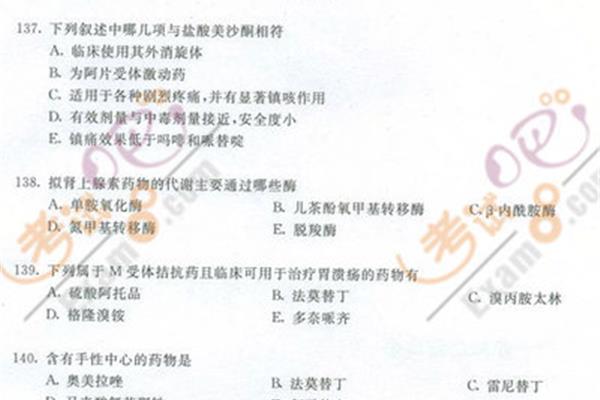 137. 下列叙述中哪几项与盐酸美沙酮相符
A. 临床使用其外消旋体
B. 为阿片受体激动药
C. 适用于各种剧烈疼痛,并有显著镇咳作用
D. 有效剂量与中毒剂量接近,安全度小
E. 镇痛效果低于吗啡和哌替啶
138. 拟肾上腺素药物的代谢主要通过哪些酶
A. 单胺氧化酶 B. 儿茶酚氧甲基转移酶 C. β-内酰胺酶
D. 氮甲基转移酶 E. 脱羧酶
139. 下列属于 M 受体拮抗药且临床可用于治疗胃溃疡的药物有
A. 硫酸阿托品 B. 法莫替丁 C. 溴丙胺太林
D. 格隆溴铵 E. 多奈哌齐
140. 含有手性中心的药物是
A. 奥美拉唑 B. 法莫替丁 C. 雷尼替丁
考试吧 Exam8.com
考试吧 Exam8.com